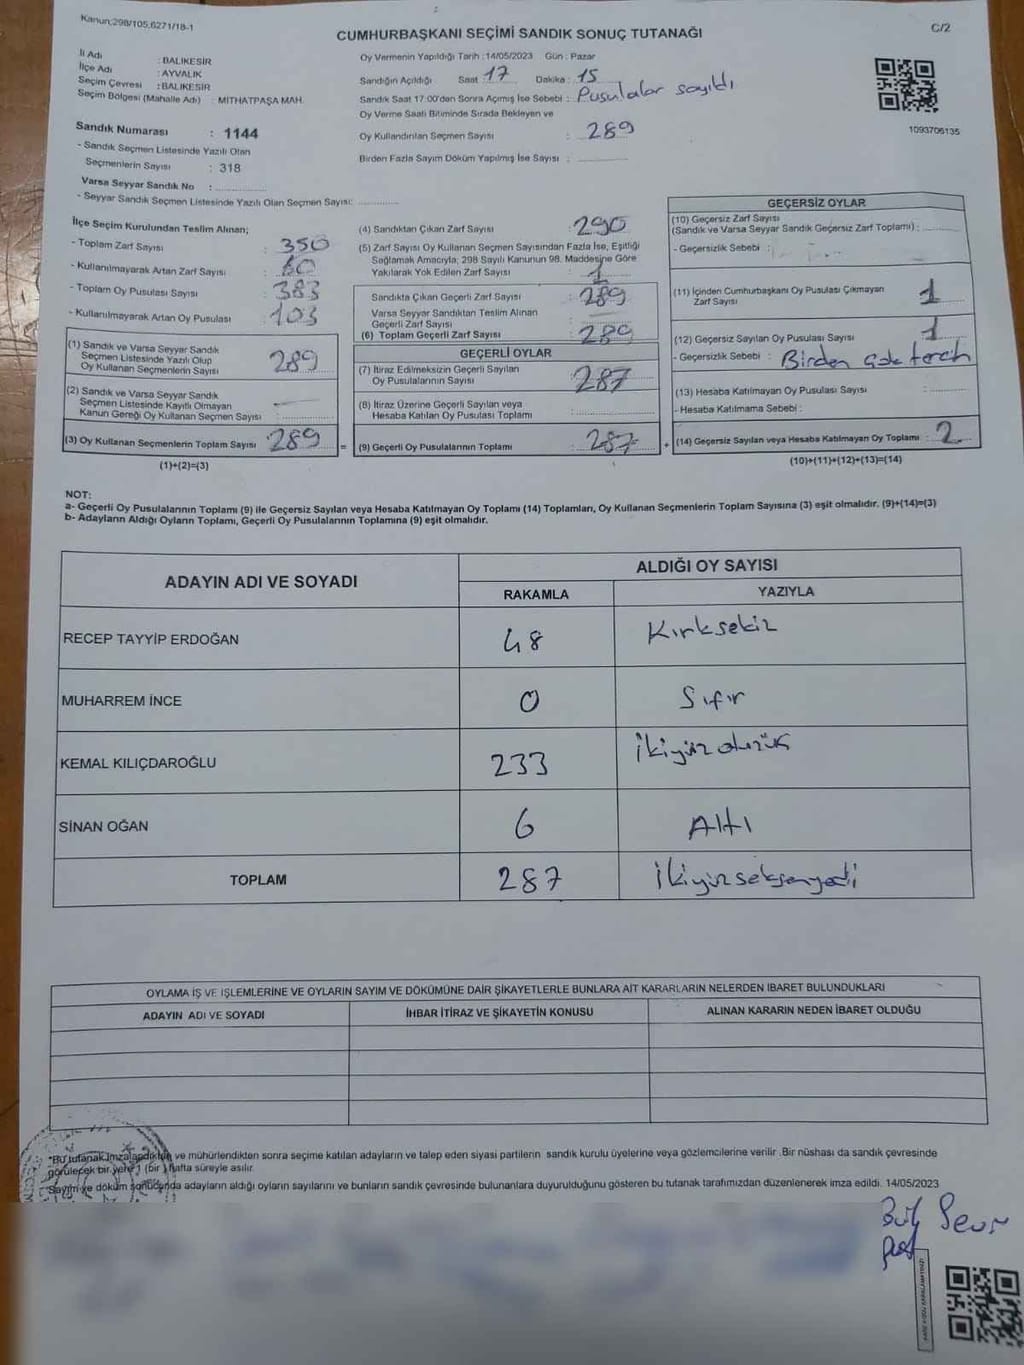 Kanun:298/105,6271/18-1
CUMHURBAŞKANI SEÇİMİ SANDIK SONUÇ TUTANAĞI
C/2
İl Adı : BALIKESİR
İlçe Adı : AYVALIK
Seçim Çevresi : BALIKESİR
Seçim Bölgesi (Mahalle Adı) : MİTHATPAŞA MAH.
Sandık Numarası : 1144
- Sandık Seçmen Listesinde Yazılı Olan
Seçmenlerin Sayısı : 318
Varsa Seyyar Sandık No :
- Seyyar Sandık Seçmen Listesinde Yazılı Olan Seçmen Sayısı:
Oy Vermenin Yapıldığı Tarih :14/05/2023 Gün : Pazar
Sandığın Açıldığı Saat : 17 Dakika : 15
Sandık Saat 17:00'dan Sonra Açımış İse Sebebi : Pusulalar sayıldı
Oy Verme Saati Bitiminde Sırada Bekleyen ve
Oy Kullandırılan Seçmen Sayısı : 289
Birden Fazla Sayım Döküm Yapılmış İse Sayısı :
1093706135
İlçe Seçim Kurulundan Teslim Alınan;
- Toplam Zarf Sayısı : 350
- Kullanılmayarak Artan Zarf Sayısı : 60
- Toplam Oy Pusulası Sayısı : 383
- Kullanılmayarak Artan Oy Pusulası : 103
(1) Sandık ve Varsa Seyyar Sandık
Seçmen Listesinde Yazılı Olup
Oy Kullanan Seçmenlerin Sayısı : 289
(2) Sandık ve Varsa Seyyar Sandık
Seçmen Listesinde Kayıtlı Olmayan
Kanun Gereği Oy Kullanan Seçmen Sayısı :
(3) Oy Kullanan Seçmenlerin Toplam Sayısı : 289 =
(1)+(2)=(3)
(4) Sandıktan Çıkan Zarf Sayısı : 290
(5) Zarf Sayısı Oy Kullanan Seçmen Sayısından Fazla İse, Eşitliği
Sağlamak Amacıyla; 298 Sayılı Kanunun 98. Maddesine Göre
Yakılarak Yok Edilen Zarf Sayısı : 1
Sandıkta Çıkan Geçerli Zarf Sayısı : 289
Varsa Seyyar Sandıktan Teslim Alınan
Geçerli Zarf Sayısı
(6) Toplam Geçerli Zarf Sayısı : 289
GEÇERLİ OYLAR
(7) İtiraz Edilmeksizin Geçerli Sayılan
Oy Pusulalarının Sayısı : 287
(8) İtiraz Üzerine Geçerli Sayılan veya
Hesaba Katılan Oy Pusulası Toplamı :
(9) Geçerli Oy Pusulalarının Toplamı : 287 +
GEÇERSİZ OYLAR
(10) Geçersiz Zarf Sayısı
(Sandık ve Varsa Seyyar Sandık Geçersiz Zarf Toplamı) :
- Geçersizlik Sebebi :
(11) İçinden Cumhurbaşkanı Oy Pusulası Çıkmayan
Zarf Sayısı 1
(12) Geçersiz Sayılan Oy Pusulası Sayısı : 1
- Geçersizlik Sebebi : Birden çok tercih
(13) Hesaba Katılmayan Oy Pusulası Sayısı :
- Hesaba Katılmama Sebebi :
(14) Geçersiz Sayılan veya Hesaba Katılmayan Oy Toplamı : 2
(10)+(11)+(12)+(13)=(14)
NOT:
a- Geçerli Oy Pusulalarının Toplamı (9) ile Geçersiz Sayılan veya Hesaba Katılmayan Oy Toplamı (14) Toplamları, Oy Kullanan Seçmenlerin Toplam Sayısına (3) eşit olmalıdır. (9)+(14)=(3)
b- Adayların Aldığı Oyların Toplamı, Geçerli Oy Pusulalarının Toplamına (9) eşit olmalıdır.
ADAYIN ADI VE SOYADI
ALDIĞI OY SAYISI
RAKAMLA YAZIYLA
RECEP TAYYİP ERDOĞAN 48 Kırksekiz
MUHARREM İNCE 0 Sıfır
KEMAL KILIÇDAROĞLU 233 İkiyüz otuzüç
SİNAN OĞAN 6 Altı
TOPLAM 287 İkiyüzseksenyedi
OYLAMA İŞ VE İŞLEMLERİNE VE OYLARIN SAYIM VE DÖKÜMÜNE DAİR ŞİKAYETLERLE BUNLARA AİT KARARLARIN NELERDEN İBARET BULUNDUKLARI
ADAYIN ADI VE SOYADI İHBAR İTİRAZ VE ŞİKAYETİN KONUSU ALINAN KARARIN NEDEN İBARET OLDUĞU
*Bu tutanak imzalandıktan ve mühürlendikten sonra seçime katılan adayların ve talep eden siyasi partilerin sandık kurulu üyelerine veya gözlemcilerine verilir. Bir nüshası da sandık çevresinde
görülecek bir yere 1 (bir) hafta süreyle asılır.
Sayım ve döküm sonucunda adayların aldığı oyların sayılarını ve bunların sandık çevresinde bulunanlara duyurulduğunu gösteren bu tutanak tarafımızdan düzenlenerek imza edildi. 14/05/2023